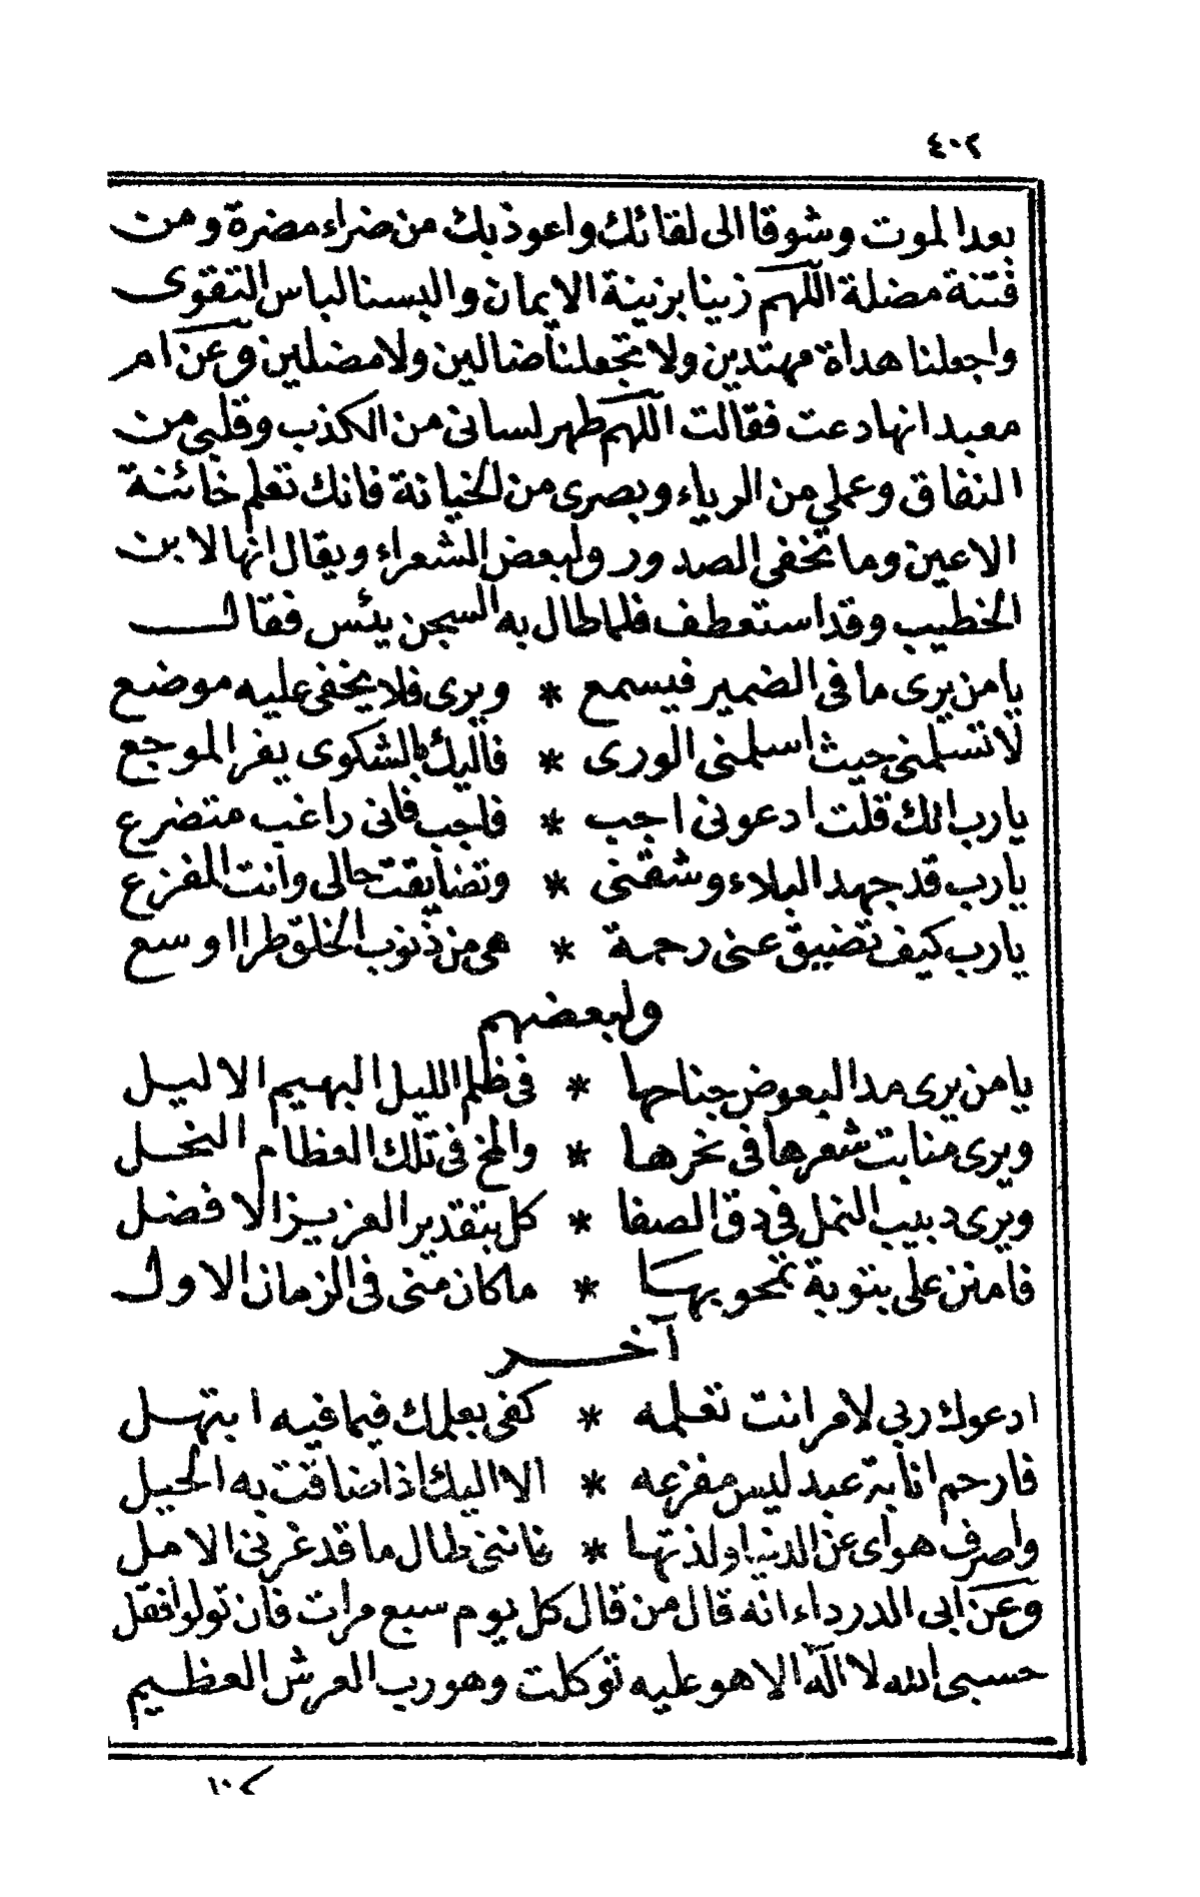 ٤٠٢
بعد الموت وشوقا الى لقائك واعوذ بك من ضراء مضرة ومن
فتنة مضلة اللهم زينا بزينة الايمان والبسنا لباس التقوى
واجعلنا هداة مهتدين ولا تجعلنا ضالين ولا مضلين وعن ام
معبد انها دعت فقالت اللهم طهر لسانى من الكذب وقلبى من
النفاق وعملى من الرياء وبصرى من الخيانة فانك تعلم خائنة
الاعين وما تخفى الصدور ولبعض الشعراء ويقال انها لابن
الخطيب وقد استعطف فلما طال به السجن يئس فقال
يا من يرى ما فى الضمير فيسمع * ويرى فلا يخفى عليه موضع
لا تسلمنى حيث اسلمنى الورى * فاليك بالشكوى يفر الموجع
يا رب انك قلت ادعونى اجب * فاجب فانى راغب متضرع
يا رب قد جهد البلاء وشقنى * وتضايقت حالى وانت المفزع
يا رب كيف تضيق عنى رحمة * هى من ذنوب الخلق طرا اوسع
ولبعضهم
يا من يرى مد البعوض جناحها * فى ظلم الليل البهيم الاليل
ويرى منابت شعرها فى نحرها * والمخ فى تلك العظام النحل
ويرى دبيب النمل فى دق الصفا * كل بتقدير العزيز الافضل
فامنن على بتوبة تمحو بها * ما كان منى فى الزمان الاول
آخر
ادعوك ربى لامر انت تعلمه * كفى بعلمك فيما فيه ابتهل
فارحم انابة عبد ليس مفزعه * الا اليك اذا ضاقت به الحيل
واصرف هواى عن الدنيا ولذتها * فاننى طال ما قد غرنى الامل
وعن ابى الدرداء انه قال من قال كل يوم سبع مرات فان تولوا فقل
حسبى الله لا اله الا هو عليه توكلت وهو رب العرش العظيم